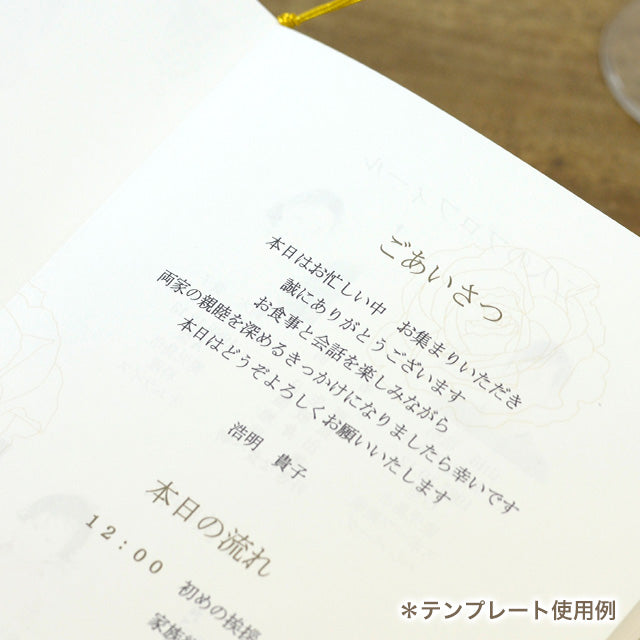 ごあいさつ
本日はお忙しい中　お集まりいただき
誠にありがとうございます
お食事と会話を楽しみながら
両家の親睦を深めるきっかけになりましたら幸いです
本日はどうぞよろしくお願いいたします
浩明　貴子
本日の流れ
12：00
初めの挨拶
家族
＊テンプレート使用例